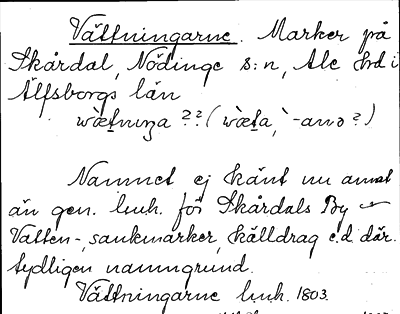 Vättningarne. Marker på
Skårdal, Nödinge s:n, Ale hrd i
Älfsborgs län
wæ̀tnuŋa ??(wæ̀ta, `-anə?)
Namnet ej känt nu annat
än gen. lmk. för Skårdals By
Vatten-, sankmarker, källdrag e.d. där.
tydligen namngrund.
Vättningarne lmk. 1803.